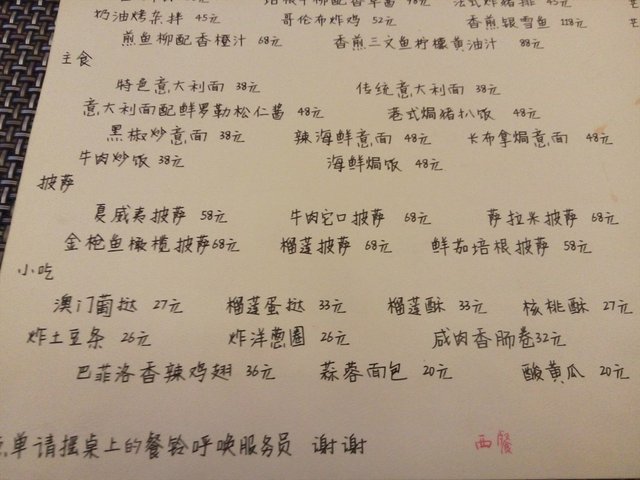 培根牛柳配香草酱 48元 法式炸猪排 45元
奶油烤杂拌 45元 哥伦布炸鸡 52元 香煎银雪鱼 118元
煎鱼柳配香橙汁 68元 香煎三文鱼柠檬黄油汁 88元
主食
特色意大利面 38元 传统意大利面 38元
意大利面配鲜罗勒松仁酱 48元 港式焗猪扒饭 48元
黑椒炒意面 38元 辣海鲜意面 48元 卡布拿焗意面 48元
牛肉炒饭 38元 海鲜焗饭 48元
披萨
夏威夷披萨 58元 牛肉它口披萨 68元 萨拉米披萨 68元
金枪鱼橄榄披萨68元 榴莲披萨 68元 鲜茄培根披萨 58元
小吃
澳门葡挞 27元 榴莲蛋挞 33元 榴莲酥 33元 核桃酥 27元
炸土豆条 26元 炸洋葱圈 26元 咸肉香肠卷32元
巴菲洛香辣鸡翅 36元 蒜蓉面包 20元 酸黄瓜 20元
点单请摇桌上的餐铃呼唤服务员 谢谢 西餐